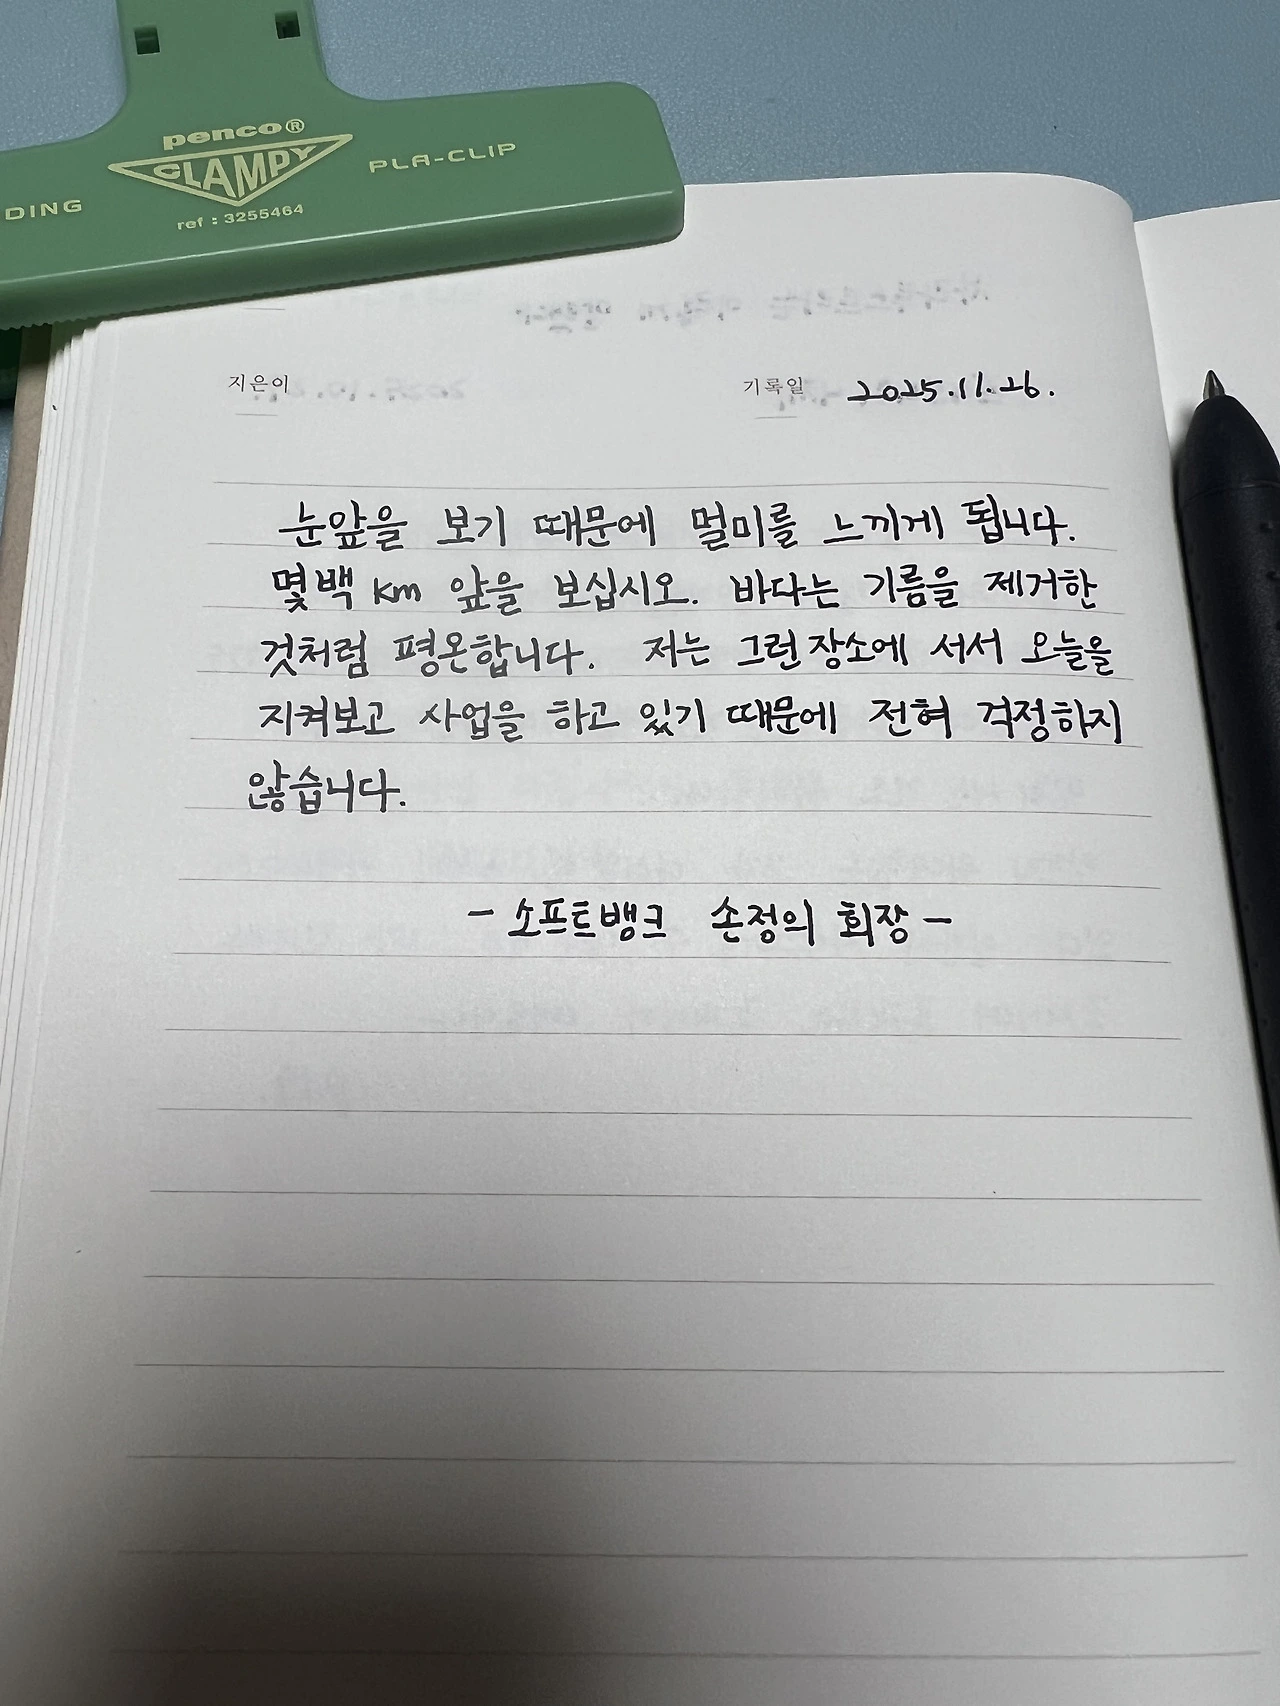 penco®
CLAMPY
PLA-CLIP
DING
ref : 3255464
지은이
기록일 2025.11.26.
눈앞을 보기 때문에 멀미를 느끼게 됩니다.
몇백 km 앞을 보십시오. 바다는 기름을 제거한
것처럼 평온합니다. 저는 그런 장소에 서서 오늘을
지켜보고 사업을 하고 있기 때문에 전혀 걱정하지
않습니다.
- 소프트뱅크 손정의 회장 -